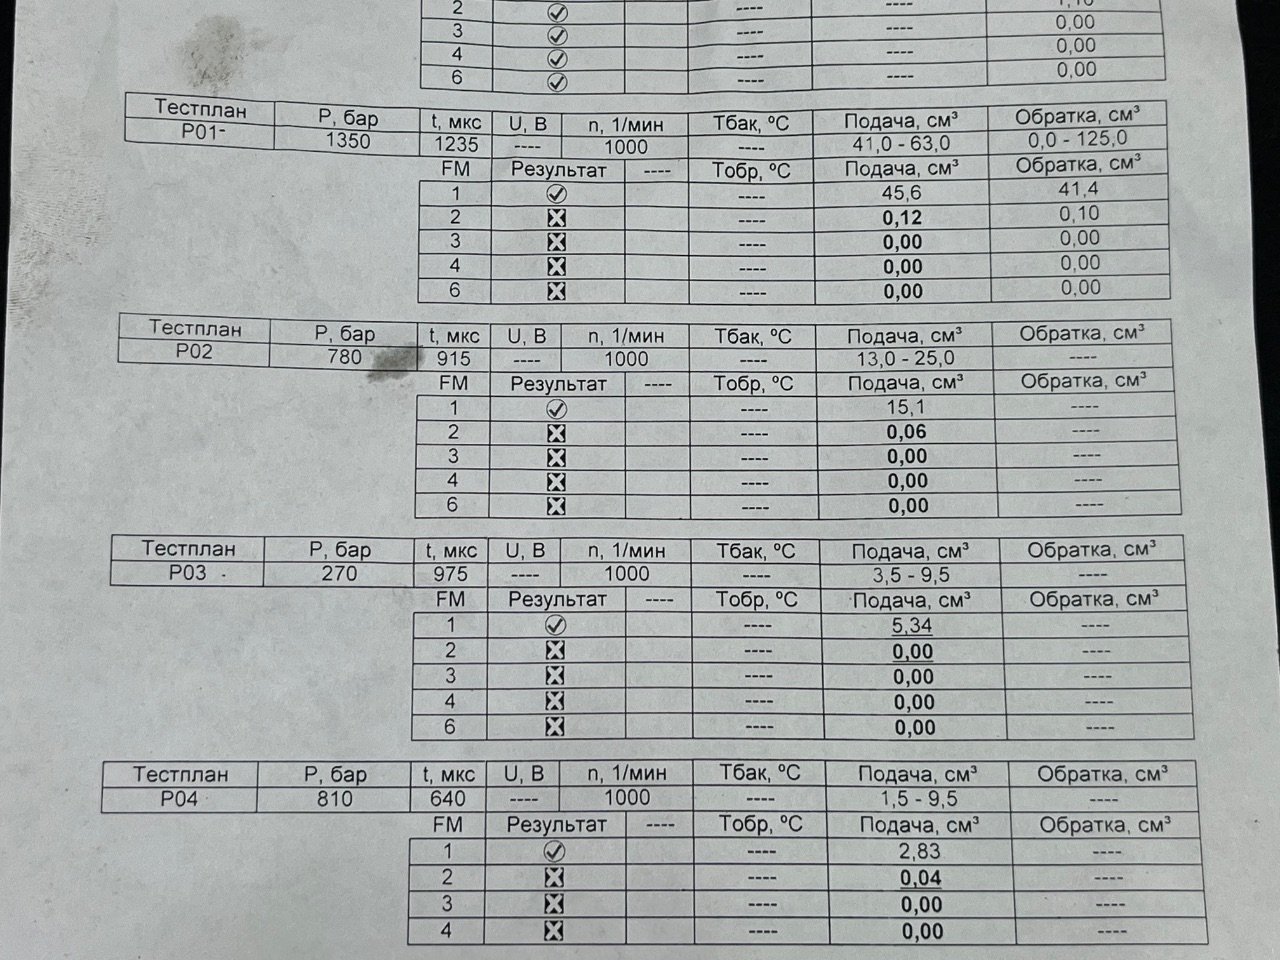 2 ---- ---- 1,10
3 ---- ---- 0,00
4 ---- ---- 0,00
6 ---- ---- 0,00
Тестплан P, бар t, мкс U, В n, 1/мин Тбак, ºС Подача, см³ Обратка, см³
P01 1350 1235 ---- 1000 ---- 41,0 - 63,0 0,0 - 125,0
FM Результат ---- Тобр, ºС Подача, см³ Обратка, см³
1 ---- 45,6 41,4
2 ---- 0,12 0,10
3 ---- 0,00 0,00
4 ---- 0,00 0,00
6 ---- 0,00 0,00
Тестплан P, бар t, мкс U, В n, 1/мин Тбак, ºС Подача, см³ Обратка, см³
P02 780 915 ---- 1000 ---- 13,0 - 25,0 ----
FM Результат ---- Тобр, ºС Подача, см³ Обратка, см³
1 ---- 15,1 ----
2 ---- 0,06 ----
3 ---- 0,00 ----
4 ---- 0,00 ----
6 ---- 0,00 ----
Тестплан P, бар t, мкс U, В n, 1/мин Тбак, ºС Подача, см³ Обратка, см³
P03 270 975 ---- 1000 ---- 3,5 - 9,5 ----
FM Результат ---- Тобр, ºС Подача, см³ Обратка, см³
1 ---- 5,34 ----
2 ---- 0,00 ----
3 ---- 0,00 ----
4 ---- 0,00 ----
6 ---- 0,00 ----
Тестплан P, бар t, мкс U, В n, 1/мин Тбак, ºС Подача, см³ Обратка, см³
P04 810 640 ---- 1000 ---- 1,5 - 9,5 ----
FM Результат ---- Тобр, ºС Подача, см³ Обратка, см³
1 ---- 2,83 ----
2 ---- 0,04 ----
3 ---- 0,00 ----
4 ---- 0,00 ----